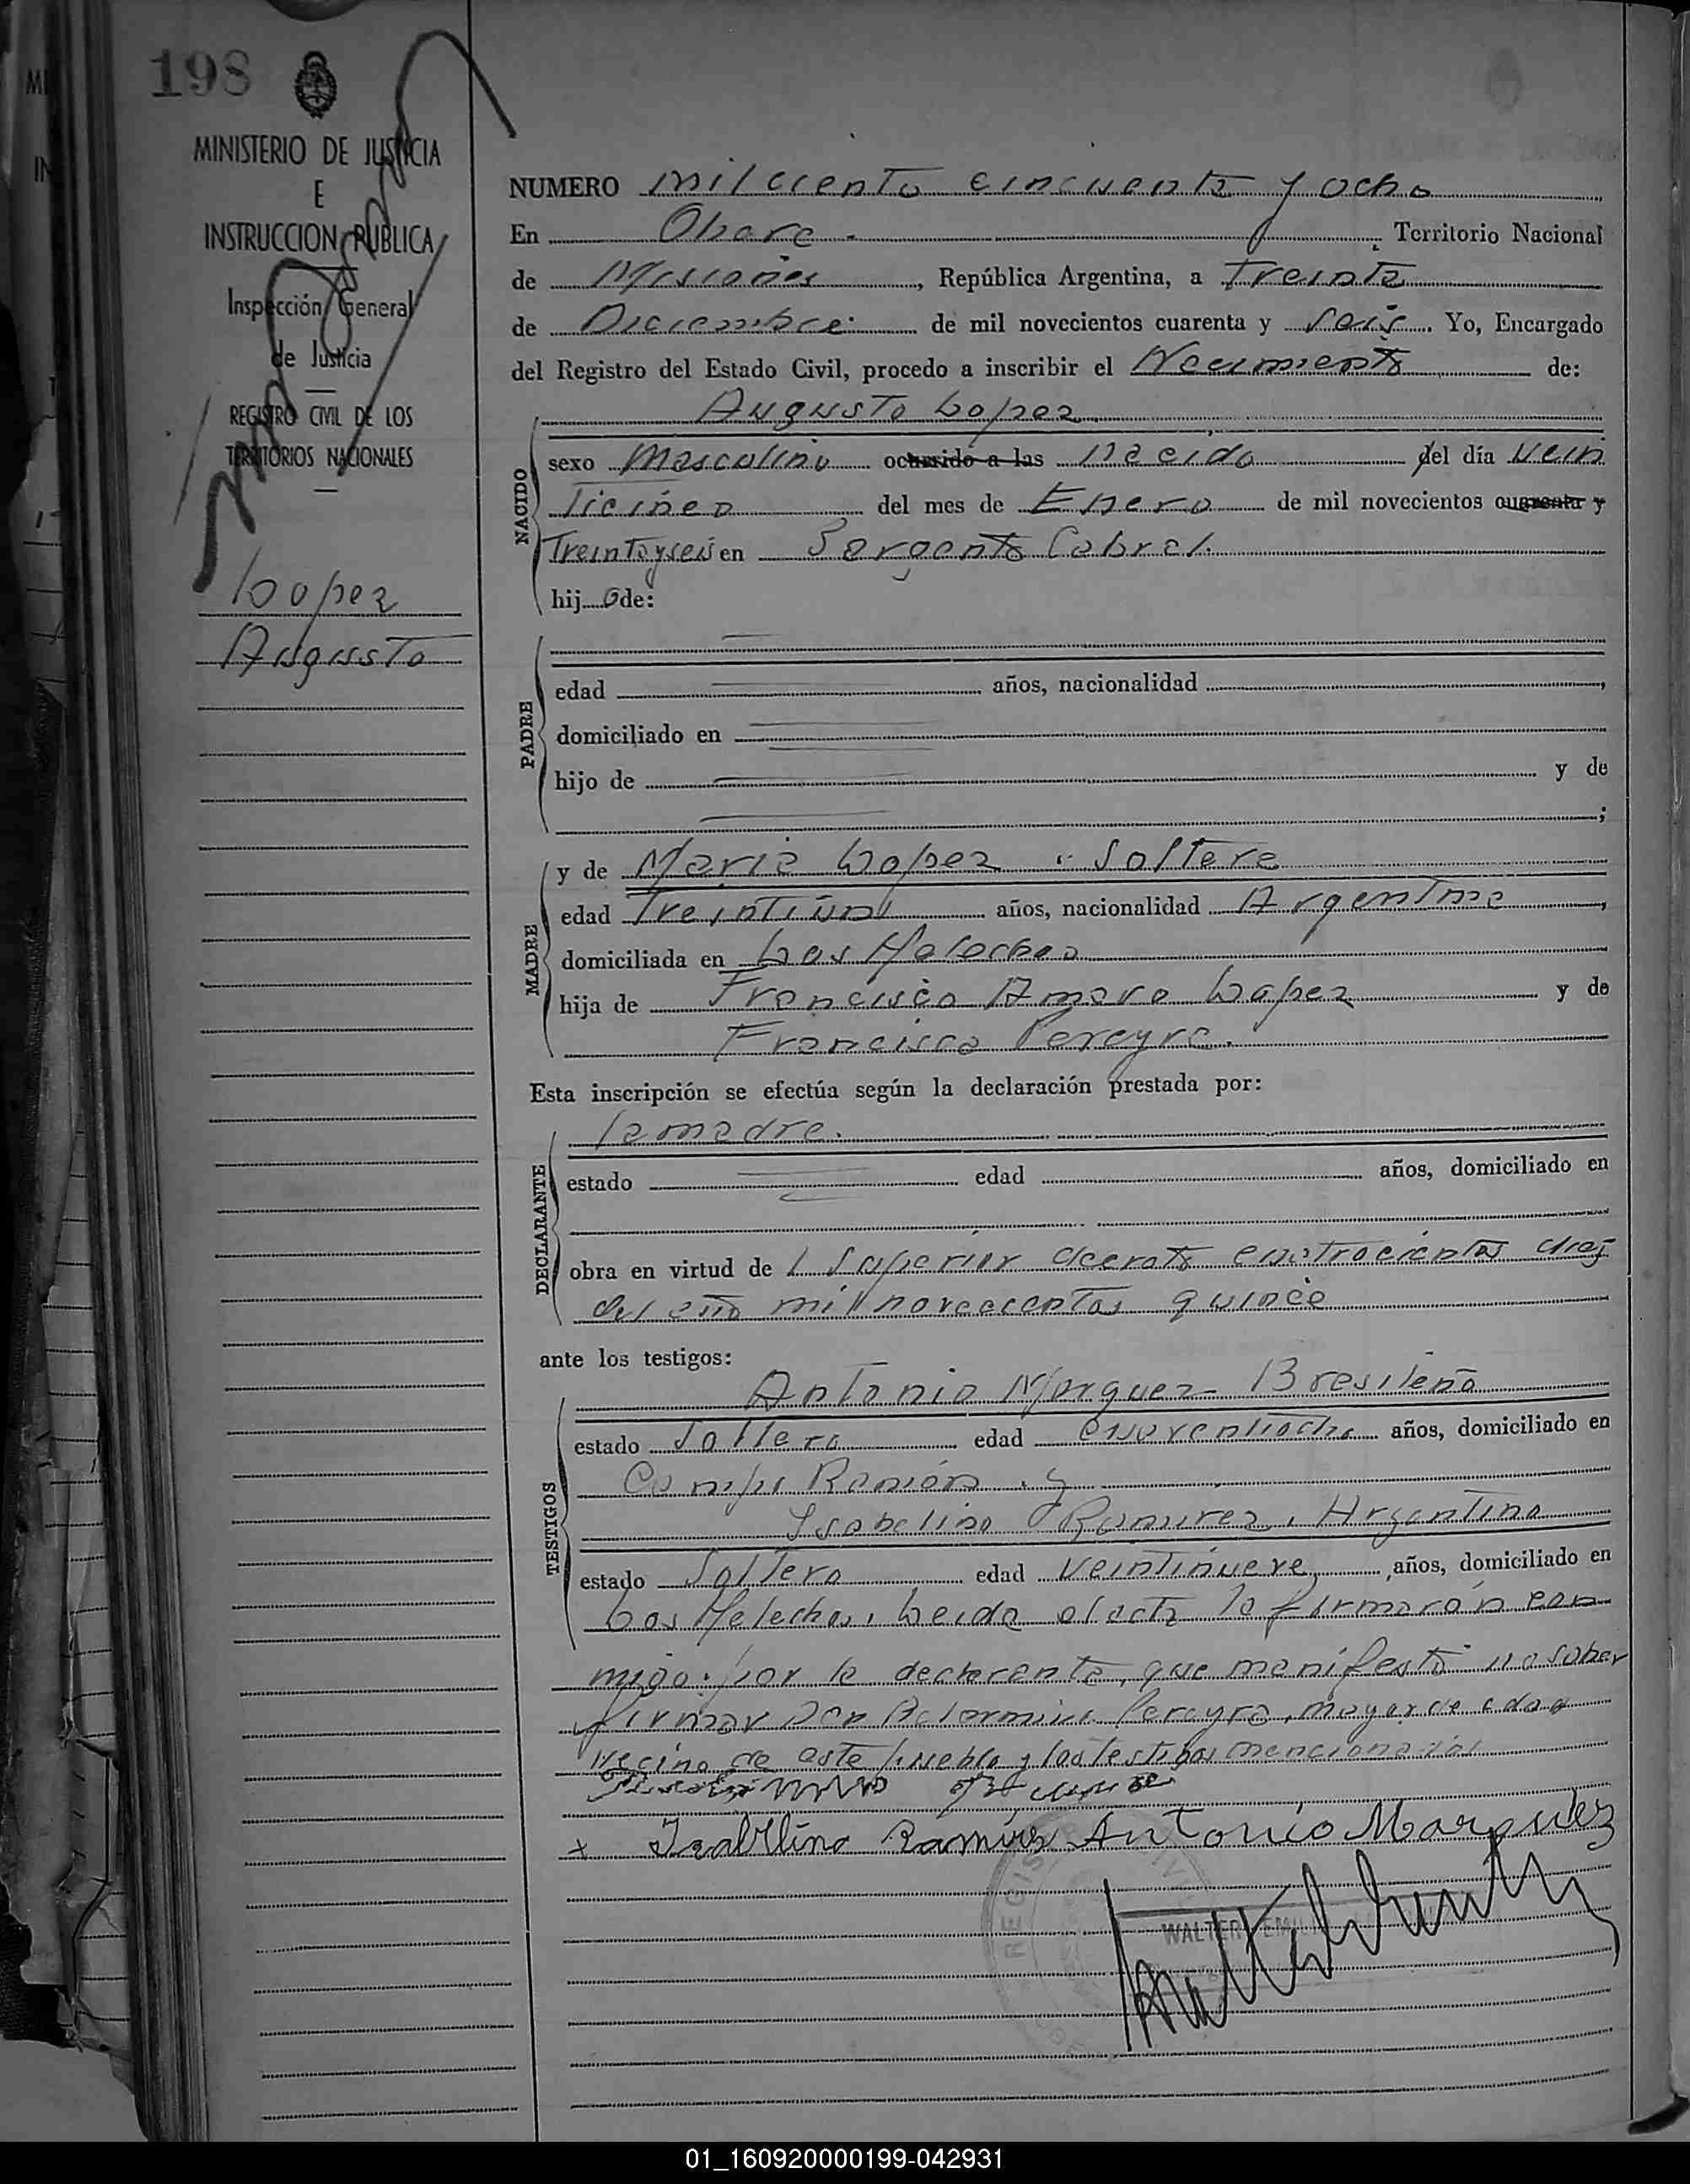 198
MINISTERIO DE JUSTICIA
E
INSTRUCCION PUBLICA
Inspección General
de Justicia
REGISTRO CIVIL DE LOS
TERRITORIOS NACIONALES
Lopez
Augusto
NUMERO mil ciento cincuenta y ocho
En Obera. Territorio Nacional
de Misiones, República Argentina, a Treinta
de Diciembre de mil novecientos cuarenta y seis. Yo, Encargado
del Registro del Estado Civil, procedo a inscribir el Nacimiento de:
Augusto Lopez
NACIDO
sexo Masculino ocurrido a las nacido del día Vein
ticinco del mes de Enero de mil novecientos cuarenta y
Treintayseis en Sargento Cabral.
hijo de:
PADRE
edad años, nacionalidad ,
domiciliado en
hijo de y de
;
MADRE
y de Maria Lopez . Soltera
edad Treintiun años, nacionalidad Argentina ,
domiciliada en Los Helechos
hija de Francisco Amaro Lopez y de
Francisca Pereyra.
Esta inscripción se efectúa según la declaración prestada por:
DECLARANTE
la madre.
estado edad años, domiciliado en
obra en virtud de l Superior decreto cuatrocientos diez
del año mil novecientos quince
ante los testigos:
TESTIGOS
Antonio Marquez Brasileño
estado Soltero edad cuarentiocho años, domiciliado en
Campo Ramón . y
Isabelino Ramirez, Argentino
estado Soltero edad Veintinueve años, domiciliado en
Los Helechos. Leida el acta la firmarón con
migo. por la declarante, que manifestó no saber
firmar Don Pereyra, mayor de edad
vecino de este pueblo y los testigos mencionados
x Izabelino Ramires Antonio Marquez
REGIS
WALTER EMIL
01_160920000199-042931